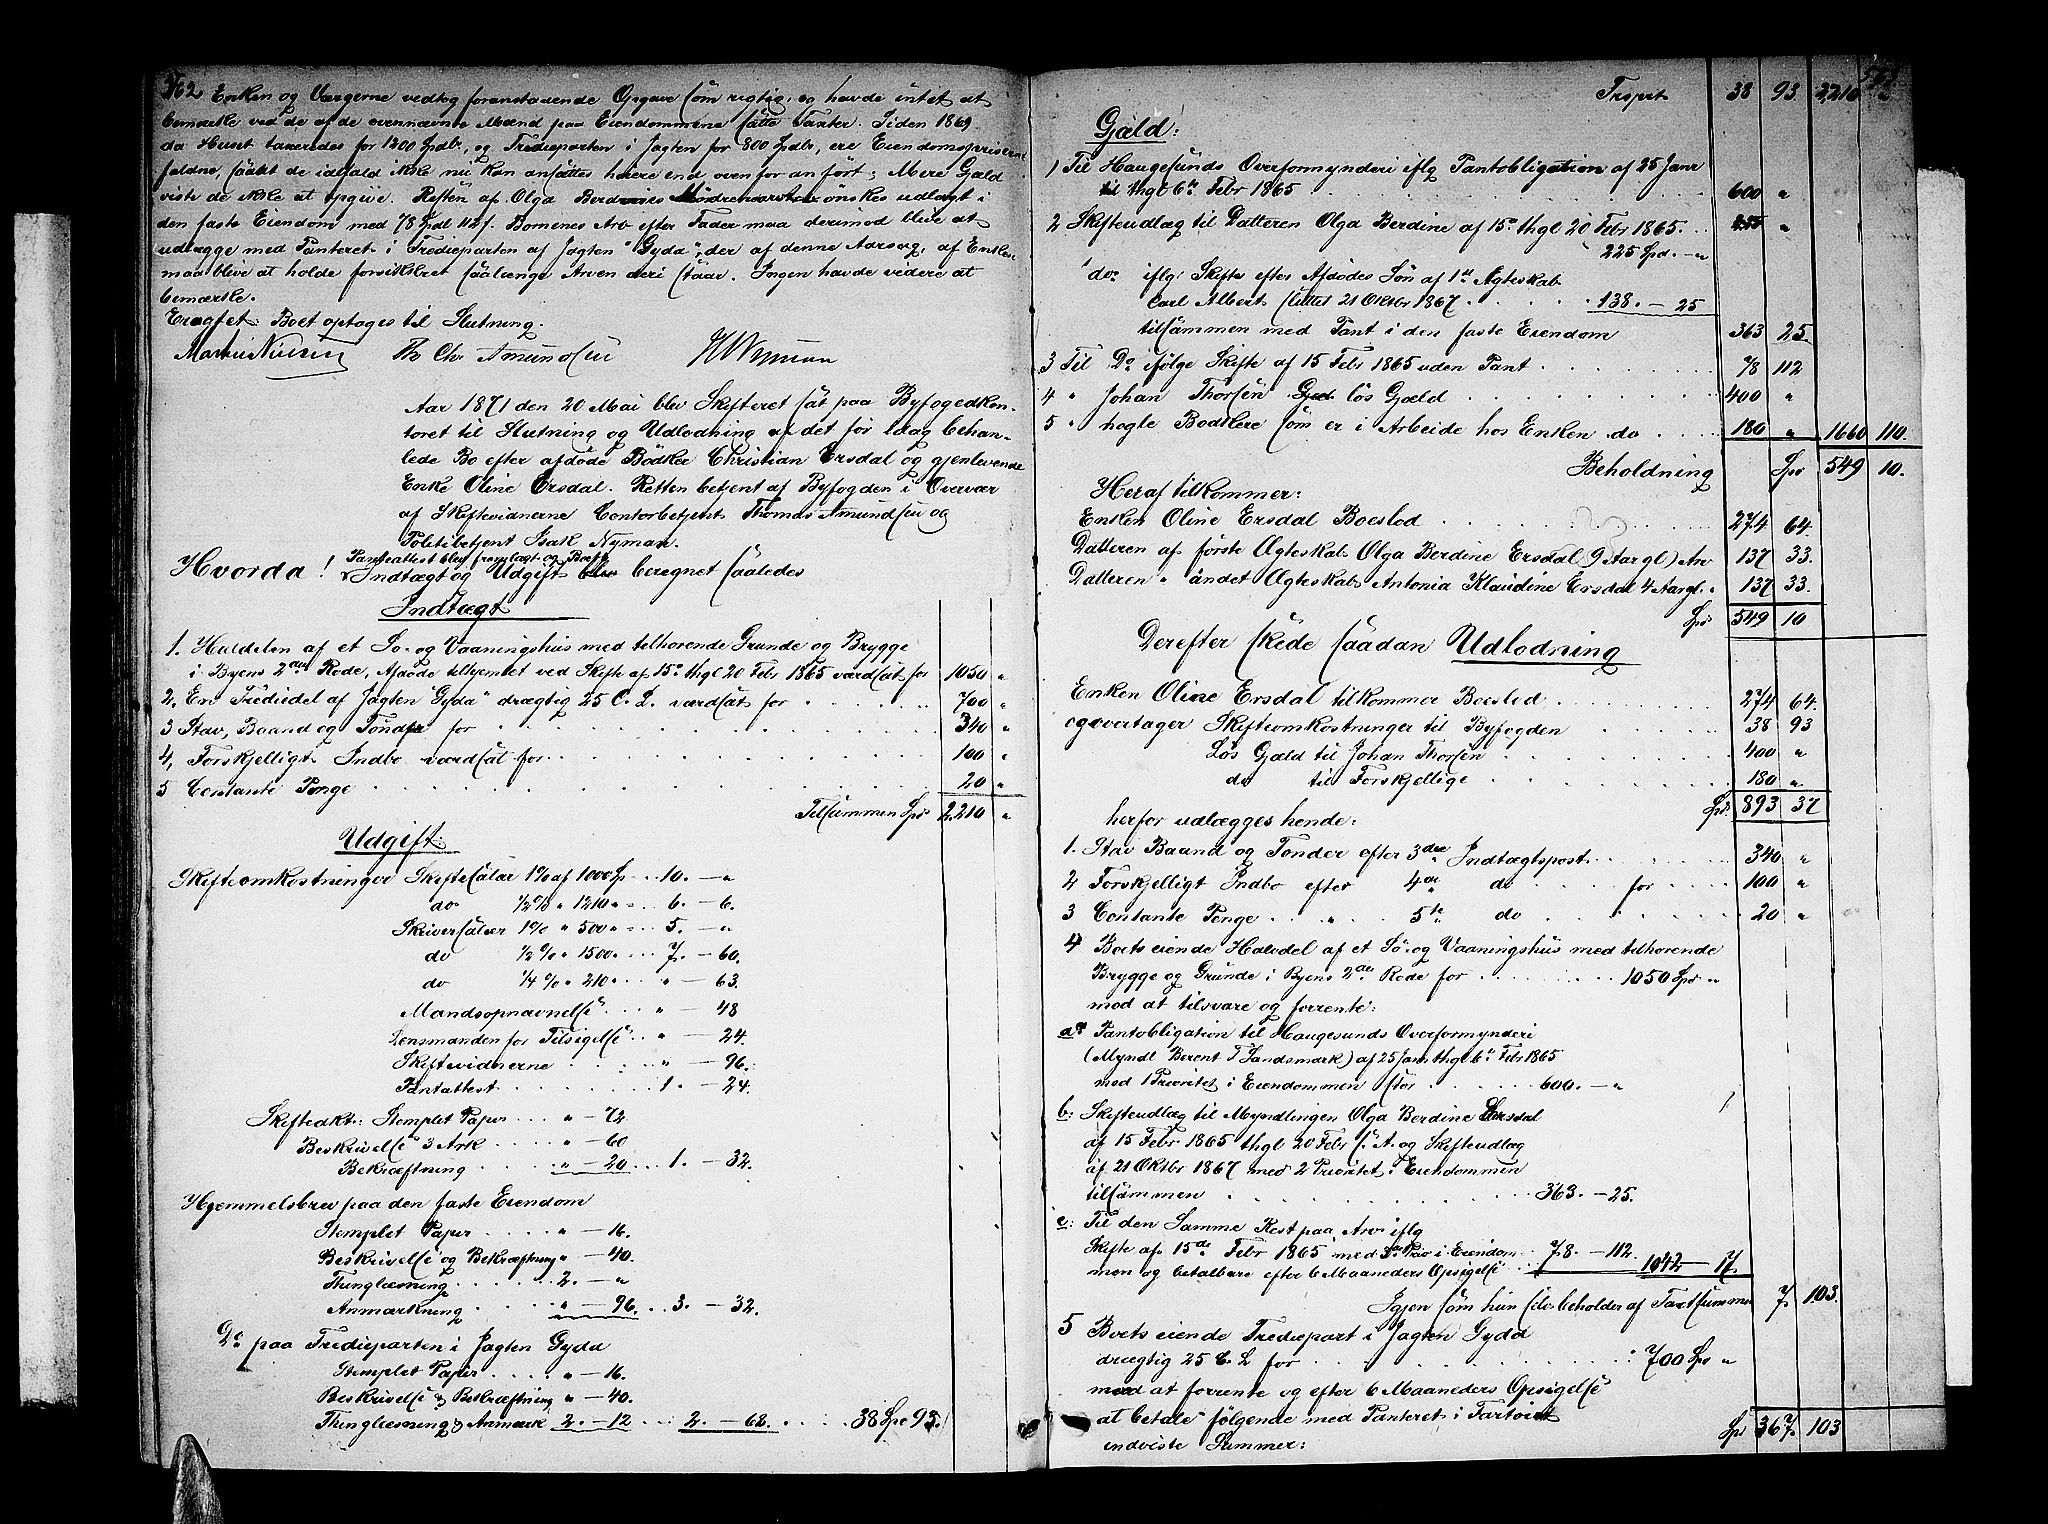 562 Enken og Værgerne vedtog foranstaaende Opgave som rigtig, og havde intet at
bemærke ved de af de ovennævnte Mænd paa Eiendommene satte Taxter. Siden 1869
da Huset taxeredes for 1200 Spdlr, og Tredieparten i Jagten for 800 Spdlr, ere Eiendomspriserne
faldne, saa at de idetfald ikke nu kan ansættes høiere end ovenfor anført; Mere Gjæld
viste de ikke at opgive. Resten af Olga Berdines Mödrenearv önskes udlagt i
den faste Eiendom med 78 Spdl 112 s. Börnenes Arv efter Fader maa derimod blive at
udlægge med Panteret i Tredieparten af Jagten "Gyda", der af denne Aarsag, af Enken
maa blive at holde forsikkret saalænge Arven deri staar. Ingen havde videre at
bemærke.
Eragtet: Boet optages til Slutning.
Markus Nielsen Th Chr Amundsen I Nyman
Aar 1871 den 20 Mai blev Skifteret sat paa Byfogedkon-
toret til Slutning og Udlodning af det för idag behan-
lede Bo efter afdöde Bödker Christian Ersdal og gjenlevende
Enke Oline Ersdal. Retten betjent af Byfogden i Overvær
af Skiftevidnerne Contorbetjent Thomas Amundsen og
Politibetjent Isak Nyman.
Hvorda! Panteattest blev fremlagt og Boets
Indtægt og Udgift blev beregnet saaledes
Indtægt
1. Halvdelen af et Sö- og Vaaningshus med tilhörende Grunde og Brygge
i Byens 2den Rode, Afdöde tilhjemlet ved Skifte af 15de thgl 20 Febr 1865 værdsat for 1050 "
2. En Trediedel af Jagten "Gyda" drægtig 25 C. L. værdsat for 700 "
3 Stav, Baand og Tönder for 340 "
4, Forskjelligt Indbo værdsat for 100 "
5 Contante Penge 20 "
Tilsammen Spd 2.210 "
Udgift:
Skifteomkostninger Skiftesalær 1% af 1000 Sp 10. — "
do ½% " 1210 " 6. — 6.
Skriversalær 1% " 500 " 5. — "
do ½% " 1500 7. — 60.
do ¼% " 210 " " — 63.
Mandsopnævnelse " — 48
Lensmanden for Tilsigelse " — 24.
Skiftevidnerne " — 96.
Pantattest 1. — 24.
Skifteakt: Stemplet Papir " — 72
Beskrivelse 3 Ark " — 60
Bekræftning " — 20 1. — 32.
Hjemmelsbrev paa den faste Eiendom
Stemplet Papir " — 16.
Beskrivelse og Bekræftning " — 40.
Thinglæsning 2. — "
Anmærkning " — 96. 3. — 32.
Do paa Tredieparten i Jagten Gyda
Stemplet Papir " — 16.
Beskrivelse & Bekræftning " — 40.
Thinglæsning & Anmærk 2. — 12 2. — 68. 38 Spd 93.
Trspt 38 93. 2,210 "
Gjæld:
1 Til Haugesunds Overformynderi iflg Pantobligation af 25 Janr
thgl 6te Febr 1865 600 "
2 Skifteudlæg til Datteren Olga Berdine af 15de thgl 20 Febr 1865.
225 Spd. — "
do iflg: Skifte efter Afdödes Sön af 1ste Ægteskab
Carl Albert sluttet 21 Oktbr 1867 138. — 25
tilsammen med Pant i den faste Eiendom 363 25.
3 Til Do ifölge Skifte af 15 Febr 1865 uden Pant 78 112
4 " Johan Thorsen lös Gjæld 400 "
5 " nogle Bödkere som er i Arbeide hos Enken do 180 " 1660 110.
Beholdning Spd 549 10.
Heraf tilkommer:
Enken Oline Ersdal Boeslod 274 64.
Datteren af förste Ægteskab Olga Berdine Ersdal 9 Aar gl) Arv 137 33.
Datteren " andet Ægteskab Antonia Klaudine Ersdal 4 Aar gl. " 137 33.
Spd 549 10
Derefter skede saadan Udlodning
Enken Oline Ersdal tilkommer Boeslod 274 64.
og overtager Skifteomkostninger til Byfogden 38 93
Lös Gjæld til Johan Thorsen 400 "
do til Forskjellige 180 "
Spd 893 37
herfor udlægges hende:
1. Stav Baand og Tönder efter 3die Indtægtspost 340 "
2 Forskjelligt Indbo efter 4de do for 100 "
3 Contante Penge " 5te do 20 "
4 Boets eiende Halvdel af et Sö- og Vaaningshus med tilhörende
Brygge og Grunde i Byens 2den Rode for 1050 Spd "
mod at tilsvare og forrente:
a: Pantobligation til Haugesunds Overformynderi
(Myndl Berent T Sandsmark) af 25 Jan thgl 6te Febr 1865
med 1 Prioritet i Eiendommen stor 600. — "
b: Skifteudlæg til Myndlingen Olga Berdine Ersdal
af 15 Febr 1865 thgl 20 Febr s. A. og Skifteudlæg
af 21 Oktbr 1867 med 2 Prioritet i Eiendommen
tilsammen 363. — 25.
c: Til den Samme Rest paa Arv iflg
Skifte af 15de Febr 1865 med 3die Prior i Eiendom 78. — 112.
men og betalbare efter 6 Maaneders Opsigelse 1042 — 17.
Igjen som hun selv beholder af Taxtsummen 7 103.
5 Boets eiende Trediepart i Jagten Gyda
drægtig 25 C. L for 700 Spd "
mod at forrente og efter 6 Maaneders Opsigelse
at betale fölgende med Panteret i Fartöiet
indviste Summer:
Spd 367 103